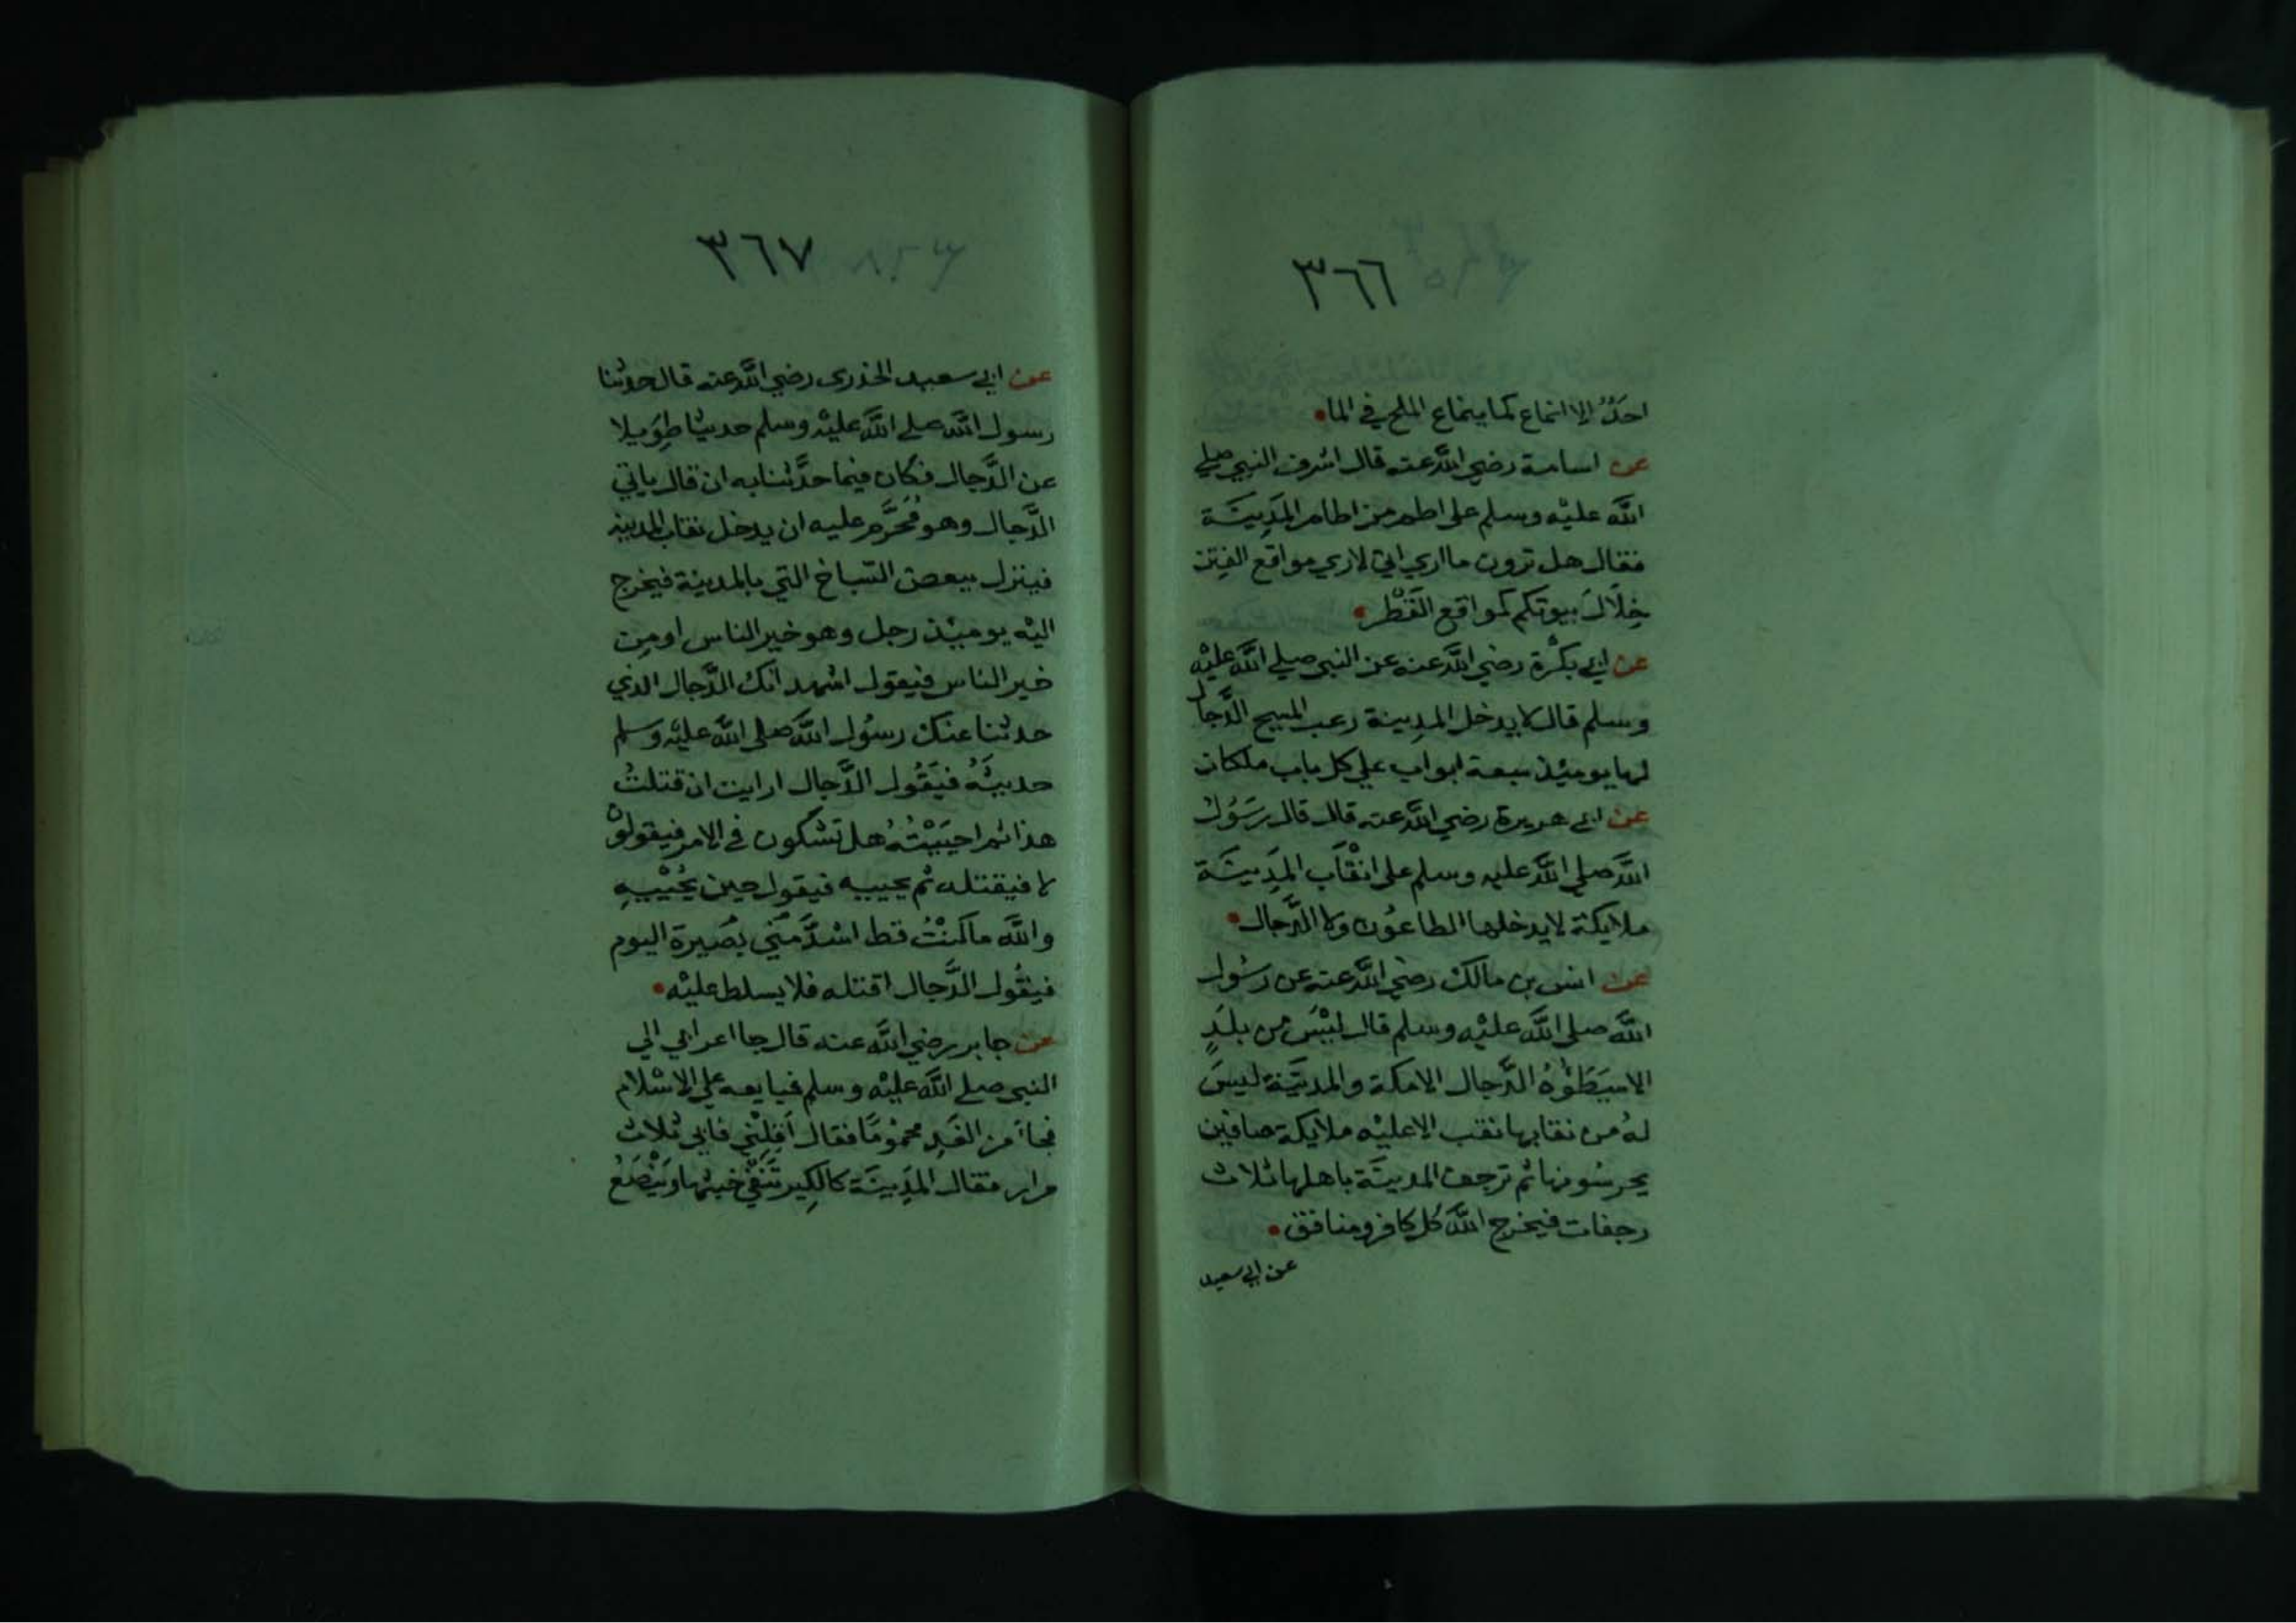 ٣٦٦
احَدٌ الا انماع كما ينماع الملح في الما
عن اسامة رضي اللَّه عنه قال اشرف النبي صلي
اللَّه عليْه وسلم على اطم من اطام المَدِينَة
فقال هل ترون ما اري اني لاري مواقع الفِتن
خِلَالَ بيوتكم كمواقع القَطْر
عن ابي بكْرة رضي اللَّه عنه عن النبي صلي اللَّه عليْه
وسلم قال لا يدخل المدِينة رعب المسيح الدَّجال
لها يوميْذ سبعة ابواب علي كل باب ملكان
عن ابي هريرة رضي اللَّه عنه قال قال رسَوُل
اللَّه صلي اللَّه عليه وسلم على انْقَاب المَدِينَة
ملايكة لا يدخلها الطاعوُن ولا الدَّجال
عن انس بن مالك رضي اللَّه عنه عن رسُول
اللَّه صلي اللَّه عليْه وسلم قال ليْسَ من بلَدٍ
الا سيَطَؤهُ الدَّجال الا مكة والمدينَة ليسَ
لهُ من نقابها نقب الا عليْه ملايكة صافين
يحرسُونها ثم ترجف المدينَة باهلها ثلاث
رجفات فيخرج اللَّه كل كافر ومنافق
عن ابي سعيد
٣٦٧
عن ابي سعيد الخدري رضي اللَّه عنه قال حدثنا
رسول اللَّه صلي اللَّه عليْه وسلم حديثا طِوَيلا
عن الدَّجال فكان فيما حدَّثنا به ان قال ياتي
الدَّجال وهو مُحَرَّم عليه ان يدخل نقاب المدينه
فينزل ببعض السّباخ التي بالمدينة فيخرج
اليْه يوميْذ رجل وهو خير الناس او مِن
خير الناس فيقول اشهد انّك الدَّجال الذي
حدثنا عنك رسُول اللَّه صلى اللَّه عليْه وسلم
حديثَهُ فيَقُول الدَّجال ارايت ان قتلتُ
هذا ثم احيَيْتُهُ هل تشكون في الامر فيقولون
لا فيقتله ثم يحييه فيقول حين يُحْيِيْهِ
واللَّه ما كنْتُ قط اشدَّ منّي بصَيرة اليوم
فيقُول الدَّجال اقتله فلا يسلط عليْه
عن جابر رضي اللَّه عنه قال جا اعرابي الي
النبي صلي اللَّه عليْه وسلم فبايعه علي الاسْلام
فجاَ من الغَدِ محموُمًا فقال أَقِلْنِي فابي ثلاث
مرار فقال المَدِينَة كالكِير تَنْفِي خبثها وَيَنْصَعُ